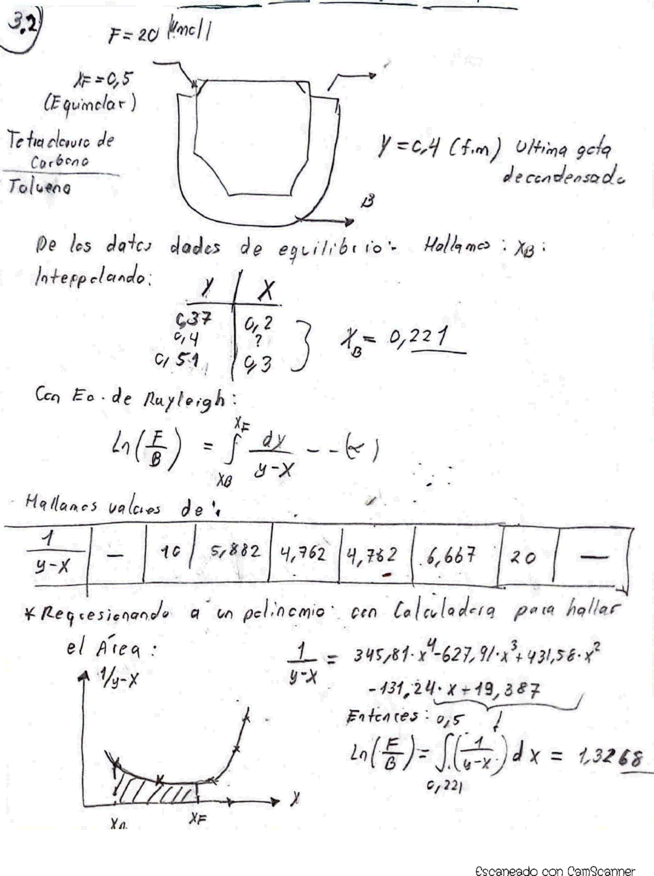 3.2
F = 20 kmol
XF = 0,5
(Equimolar)
Tetracloruro de
Carbono
Tolueno
Y = 0,4 (f.m) Ultima gota
decondensado
B
De los datos dados de equilibrio:- Hallamos: XB:
Interpolando:
Y | X
0,37 | 0,2
0,4 | ?
0,51 | 0,3
XB = 0,221
Con Ec. de Rayleigh:
Ln(F/B) = ∫ XB XF dx/(y-x) - - (α)
Hallamos valores de:
1/(y-x) | — | 10 | 5,882 | 4,762 | 4,762 | 6,667 | 20 | —
* Regresionando a un polinomio con Calculadora para hallar
el Área:
1/(y-x) = 345,81·x⁴-627,91·x³+431,58·x²
-131,24·x+19,387
Entonces:
Ln(F/B) = ∫ 0,221 0,5 (1/(y-x)) dx = 1,3268
1/y-x
X
XB
XF
Escaneado con CamScanner